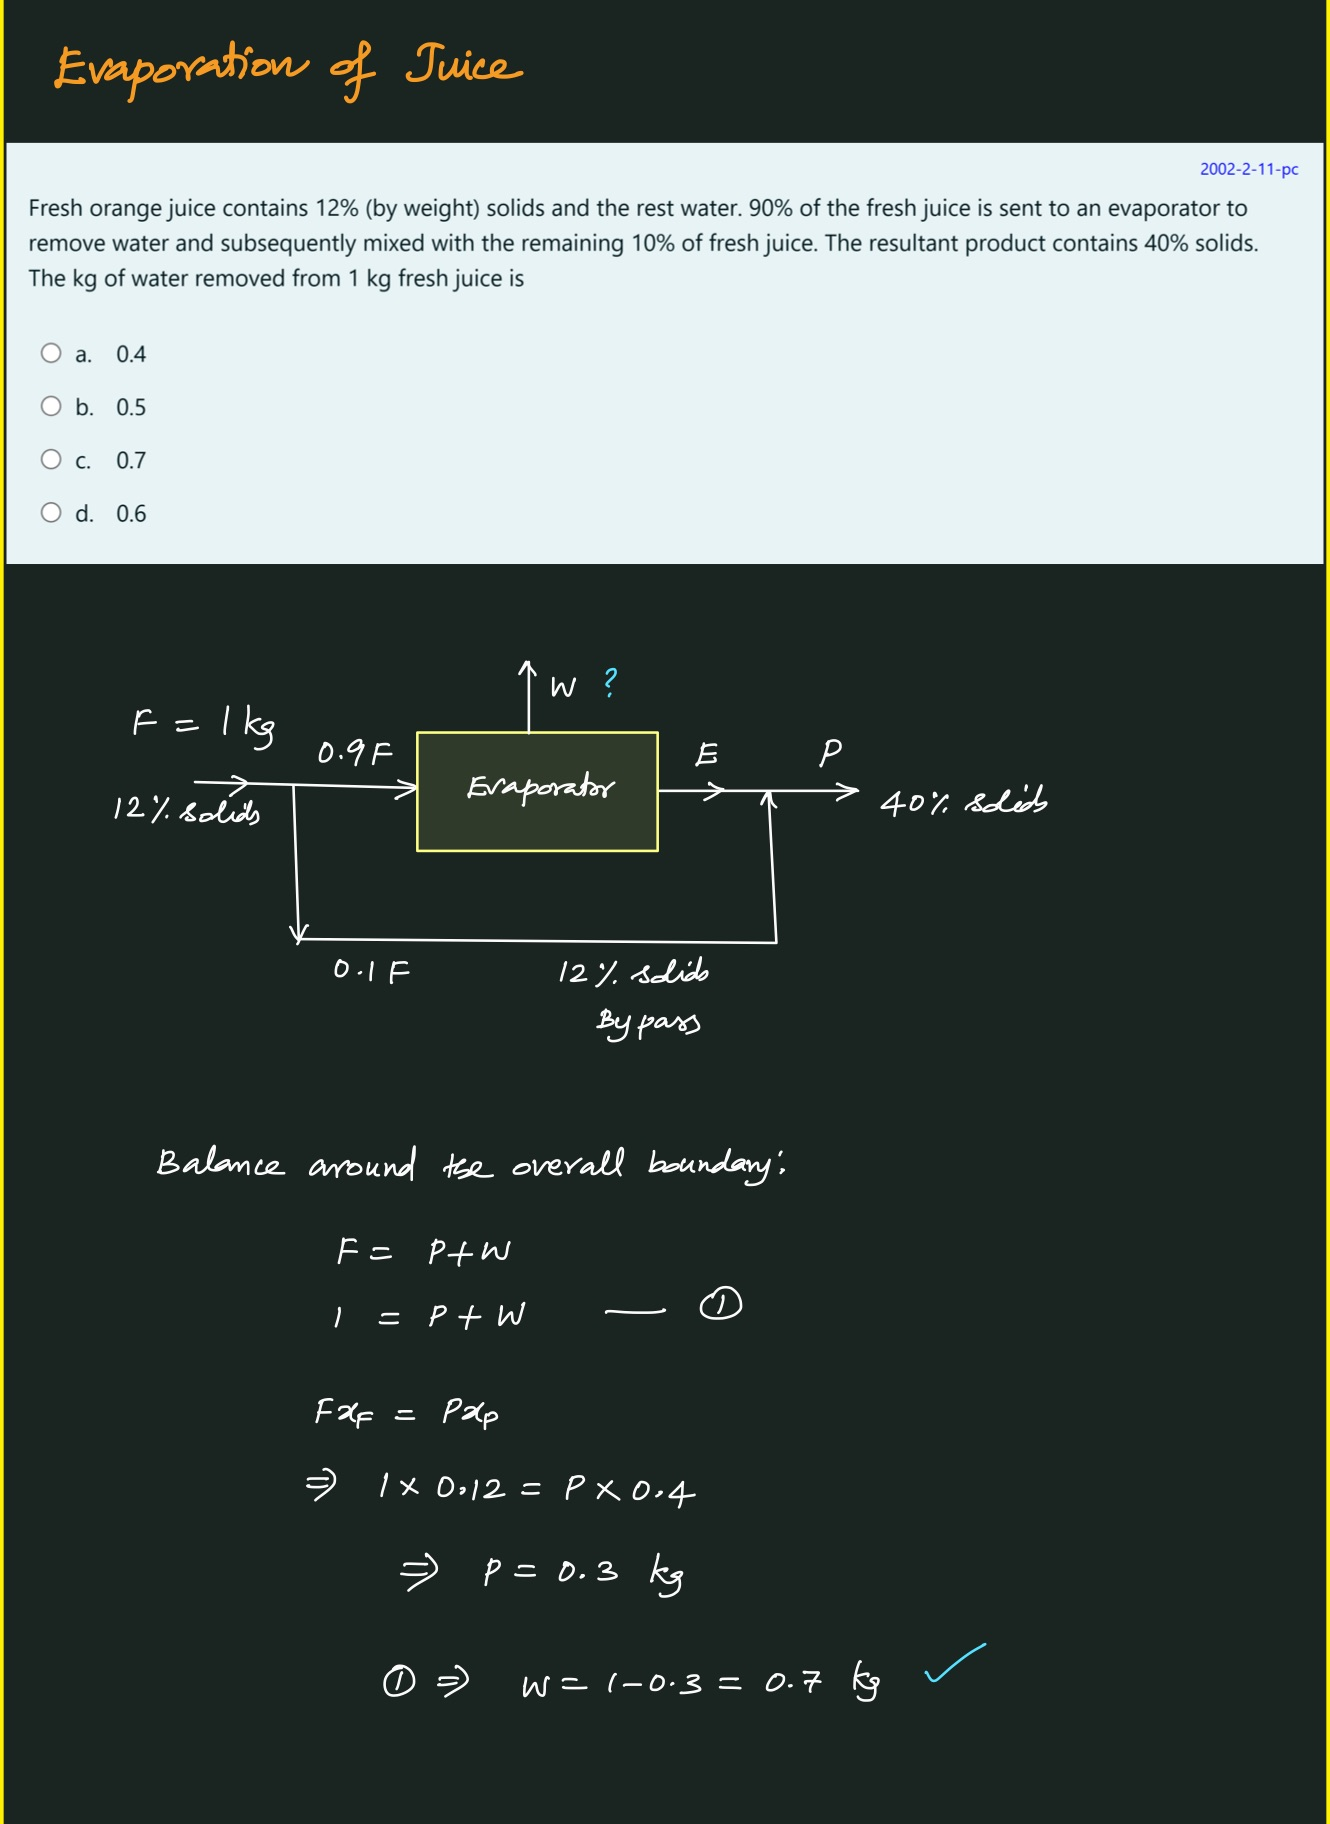 Evaporation of Juice
2002-2-11-pc
Fresh orange juice contains 12% (by weight) solids and the rest water. 90% of the fresh juice is sent to an evaporator to
remove water and subsequently mixed with the remaining 10% of fresh juice. The resultant product contains 40% solids.
The kg of water removed from 1 kg fresh juice is
a. 0.4
b. 0.5
c. 0.7
d. 0.6
W ?
F = 1 kg
0.9F
E
P
Evaporator
12% solids
40% solids
0.1F
12% solids
Bypass
Balance around the overall boundary:
F = P+W
1 = P + W — ①
Fx_F = Px_P
⇒ 1 × 0.12 = P × 0.4
⇒ P = 0.3 kg
① ⇒ W = 1-0.3 = 0.7 kg ✓